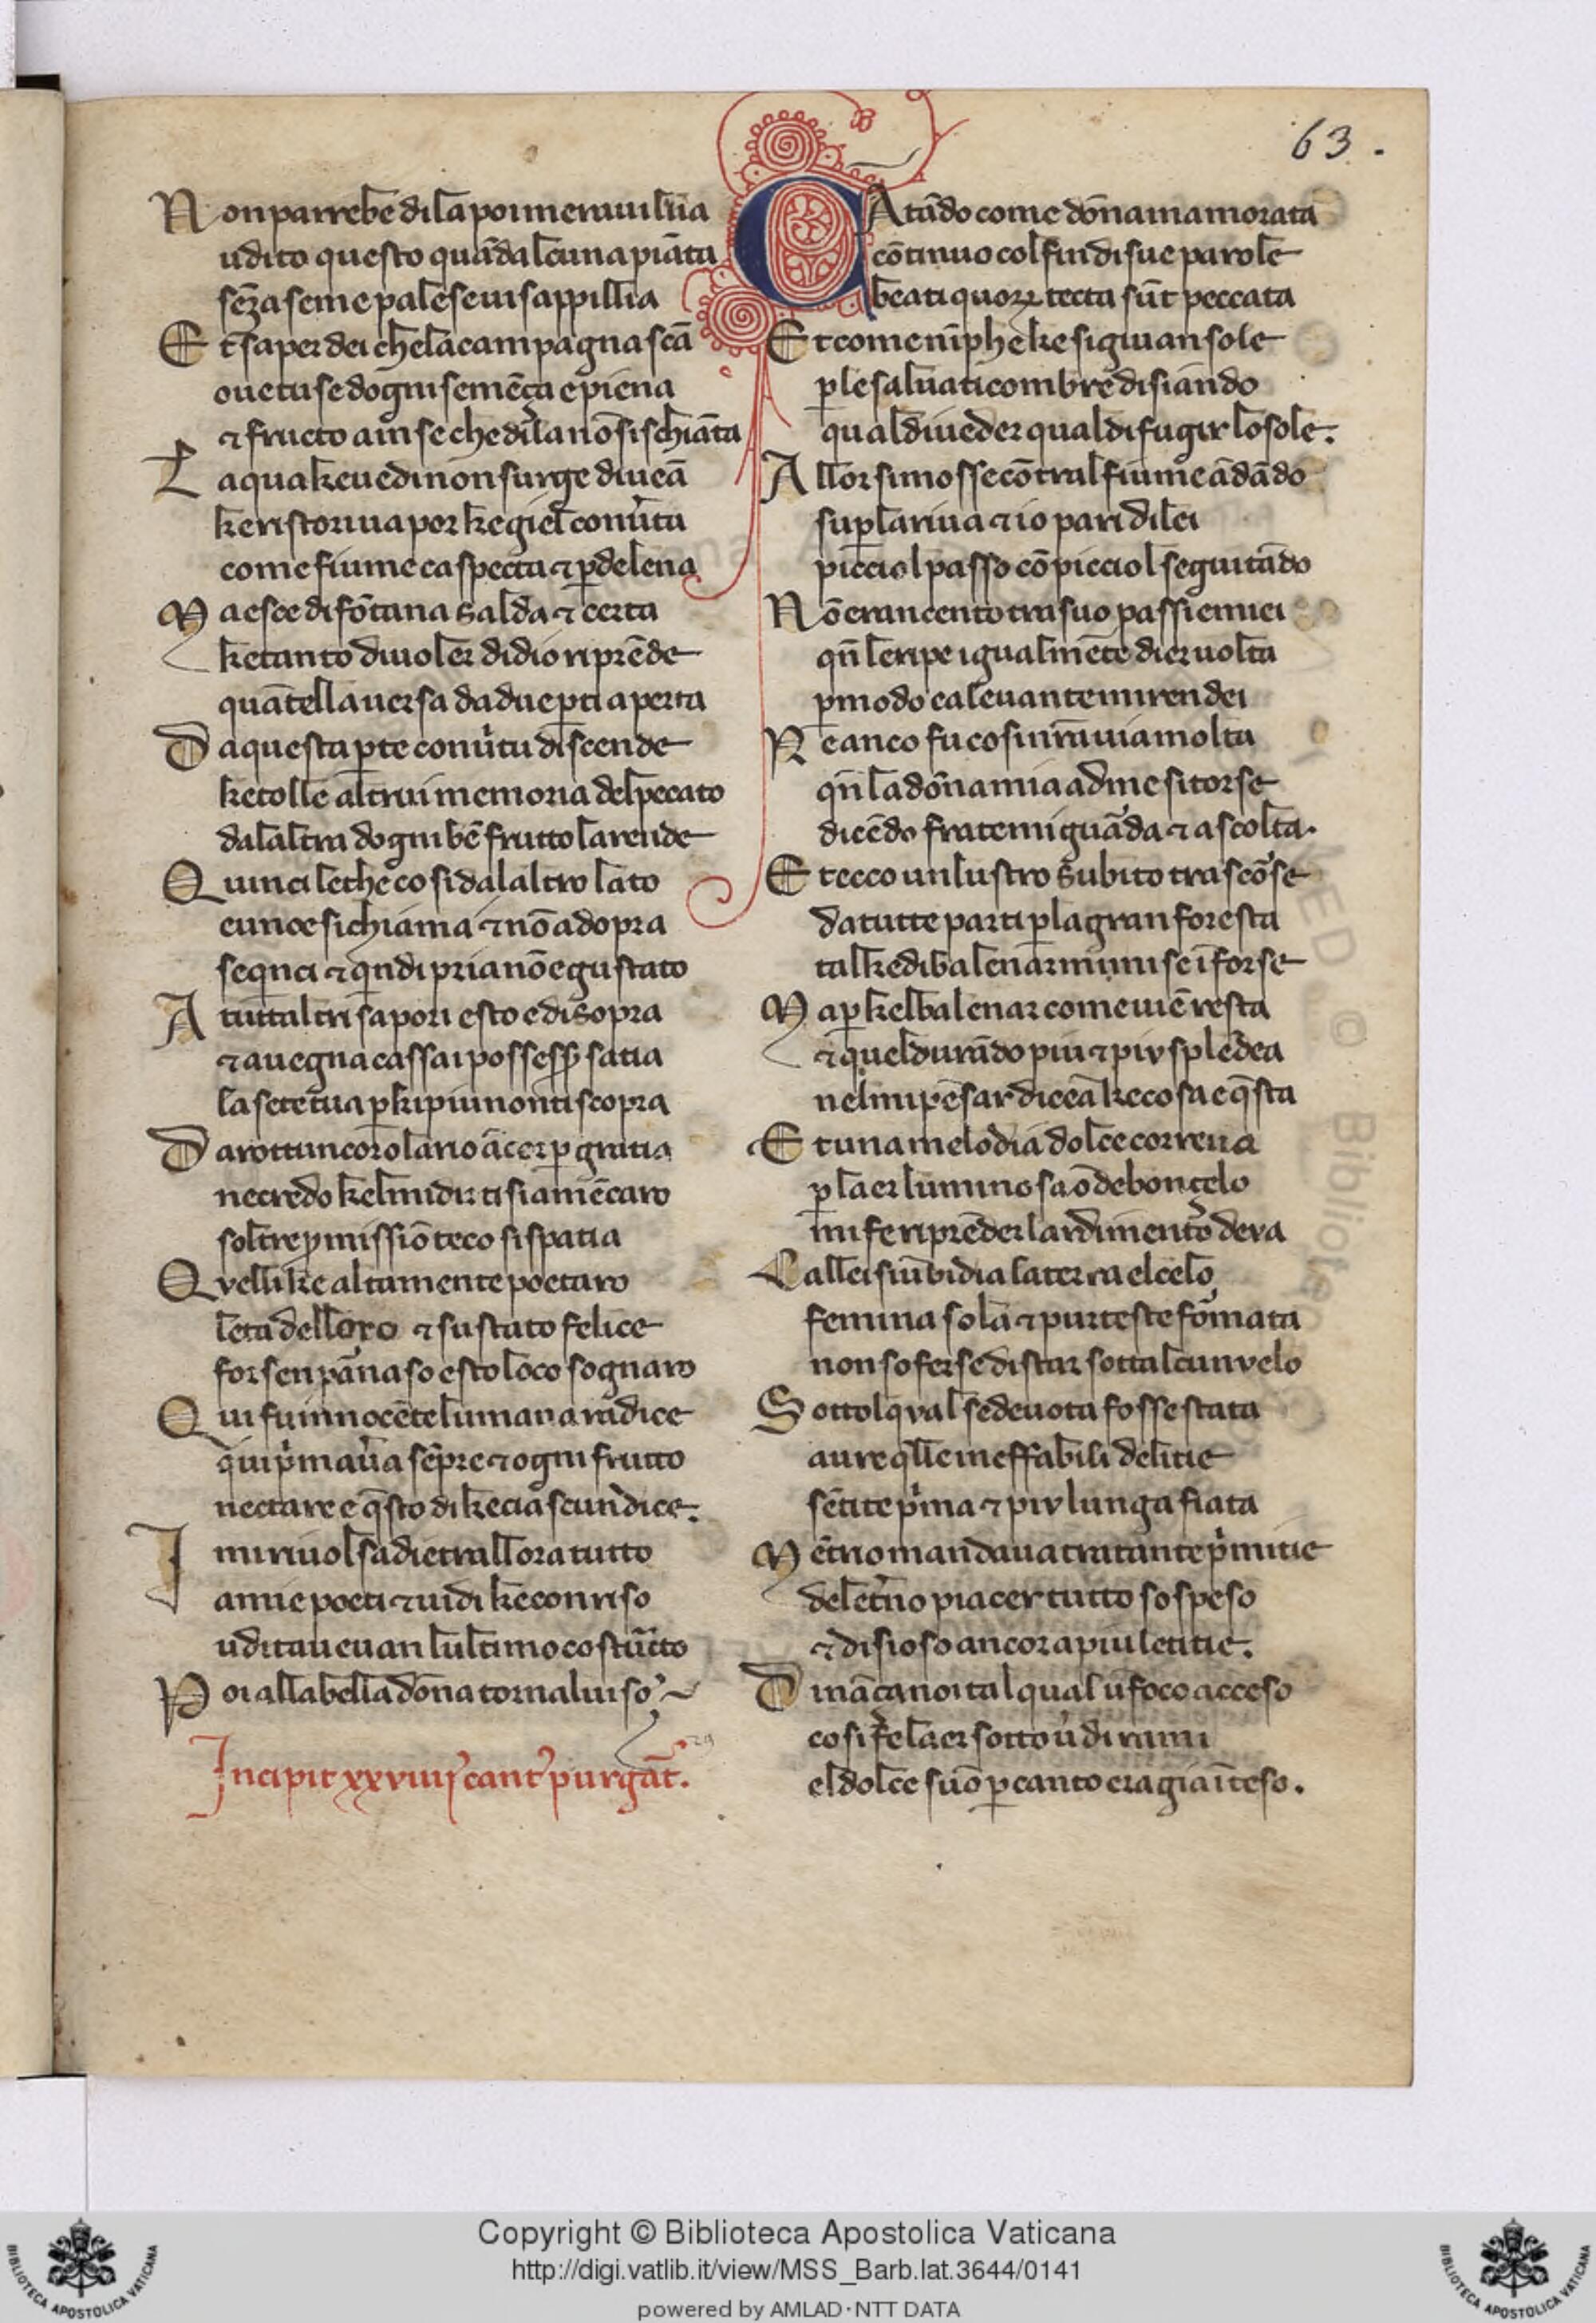 63.
Non parrebe di la poi merauillia
udito questo quãdalcuna piãta
sẽza seme palese uisappillia
Et saper dei che la campagna scã
oue tu se dogni semẽça e piena
⁊ fructo a in se che di la nõ si schiãta
Laqua ke uedi non surge di ueã
ke ristori uapor ke giel cõuta
come fiume caspecta ⁊ pde lena
Ma esce di fõtana salda ⁊ certa
ke tanto diuoler didio riprẽde
quãtella uersa da due pti aperta
Da questa pte con utu discende
ke tolle altrui memoria del pecato
da laltra dogni bẽ frutto la rende
Quinci lethe cosi dal altro lato
eunoe si chiama ⁊ nõ adopra
se qnci ⁊ qndi pria nõ e gustato
A tuttaltri sapori esto e di sopra
⁊ auegna cassai possess satia
la sete tua p kipiu non ti scopra
Darotti un corolario ãcor p gratia
ne credo kel mi dir ti sia mẽ caro
soltre pmissiõ teco si spatia
Qvelli ke altamente poetaro
leta delloro ⁊ su stato felice
forse npãnaso esto loco sognaro
Qui fu innocẽte lumana radice
qui pmaũa sẽpre ⁊ ogni frutto
nectare e qsto di ke ciascun dice.
I mi riuolsa dietro allora tutto
a mie poeti ⁊ uidi ke con riso
udito aueuan lultimo costrutto
Poi alla bella dõna tornal uiso
Incipit xxviiij cant purgat.
CAtãdo come dõna inamorata
cõtinuo col fin di sue parole
beati quorȝ tecta sũt peccata
Et come nĩphe ke si giuan sole
p le saluatic ombre disiando
qual di ueder qual di fugir lo sole.
Allor si mosse cõtral fiume ãdãdo
su p la riua ⁊ io pari di lei
picciol passo cõ picciol seguitãdo
Nõ eran cento tra suo passi e miei
qñ le ripe igualmẽte dier uolta
p modo ca leuante mi rendei
Ne anco fu cosi nr̃a uia molta
qñ la dõna mia ad me si torse
dicẽdo frate mi guãda ⁊ ascolta.
Et ecco un lustro subito trascõse
da tutte parti p la gran foresta
tal ke di balenar mi mise ĩ forse
Ma p kel balenar come uiẽ resta
⁊ quel durãdo piu ⁊ piv spledea
nel mi pẽsar dicea ke cosa e qsta
Et una melodia dolce correua
p laer luminosa õde bon çelo
mi fe riprẽder lardimento deva
Ca llei sinbidia la terra el celo
femina sola ⁊ pur teste fõmata
non soferse di star sottalcun velo
Sottol qval se deuota fosse stata
aure qlle ineffabili delitie
sẽtite pma ⁊ piv lunga fiata
Mẽtrio mandaua tra tante pmitie
del etno piacer tutto sospeso
⁊ disioso ancora piu letitie.
Dinãçanoi tal qual ũ foco acceso
cosi fe laer sotto u di rami
el dolce suõ p canto era gia ĩteso.
Copyright © Biblioteca Apostolica Vaticana
http://digi.vatlib.it/view/MSS_Barb.lat.3644/0141
powered by AMLAD·NTT DATA
BIBLIOTECA APOSTOLICA VATICANA
BIBLIOTECA APOSTOLICA VATICANA